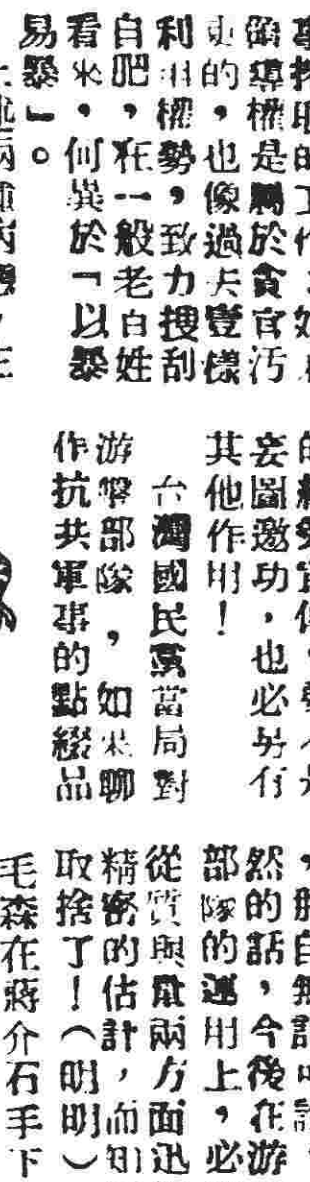 領導權是屬於貪官汚
吏的，也像過去豈樣
利用權勢，致力搜刮
自肥，在一般老百姓
看來，何異於「以暴
易暴」。
妄圖邀功，也必另有
其他作用！
台灣國民黨當局對
游擊部隊，如果聊
作抗共軍事的點綴品
然的話，今後在游
部隊的運用上，必
從質與量兩方面迅
精密的估計，而知
取捨了！（明明）
毛森在蔣介石手下